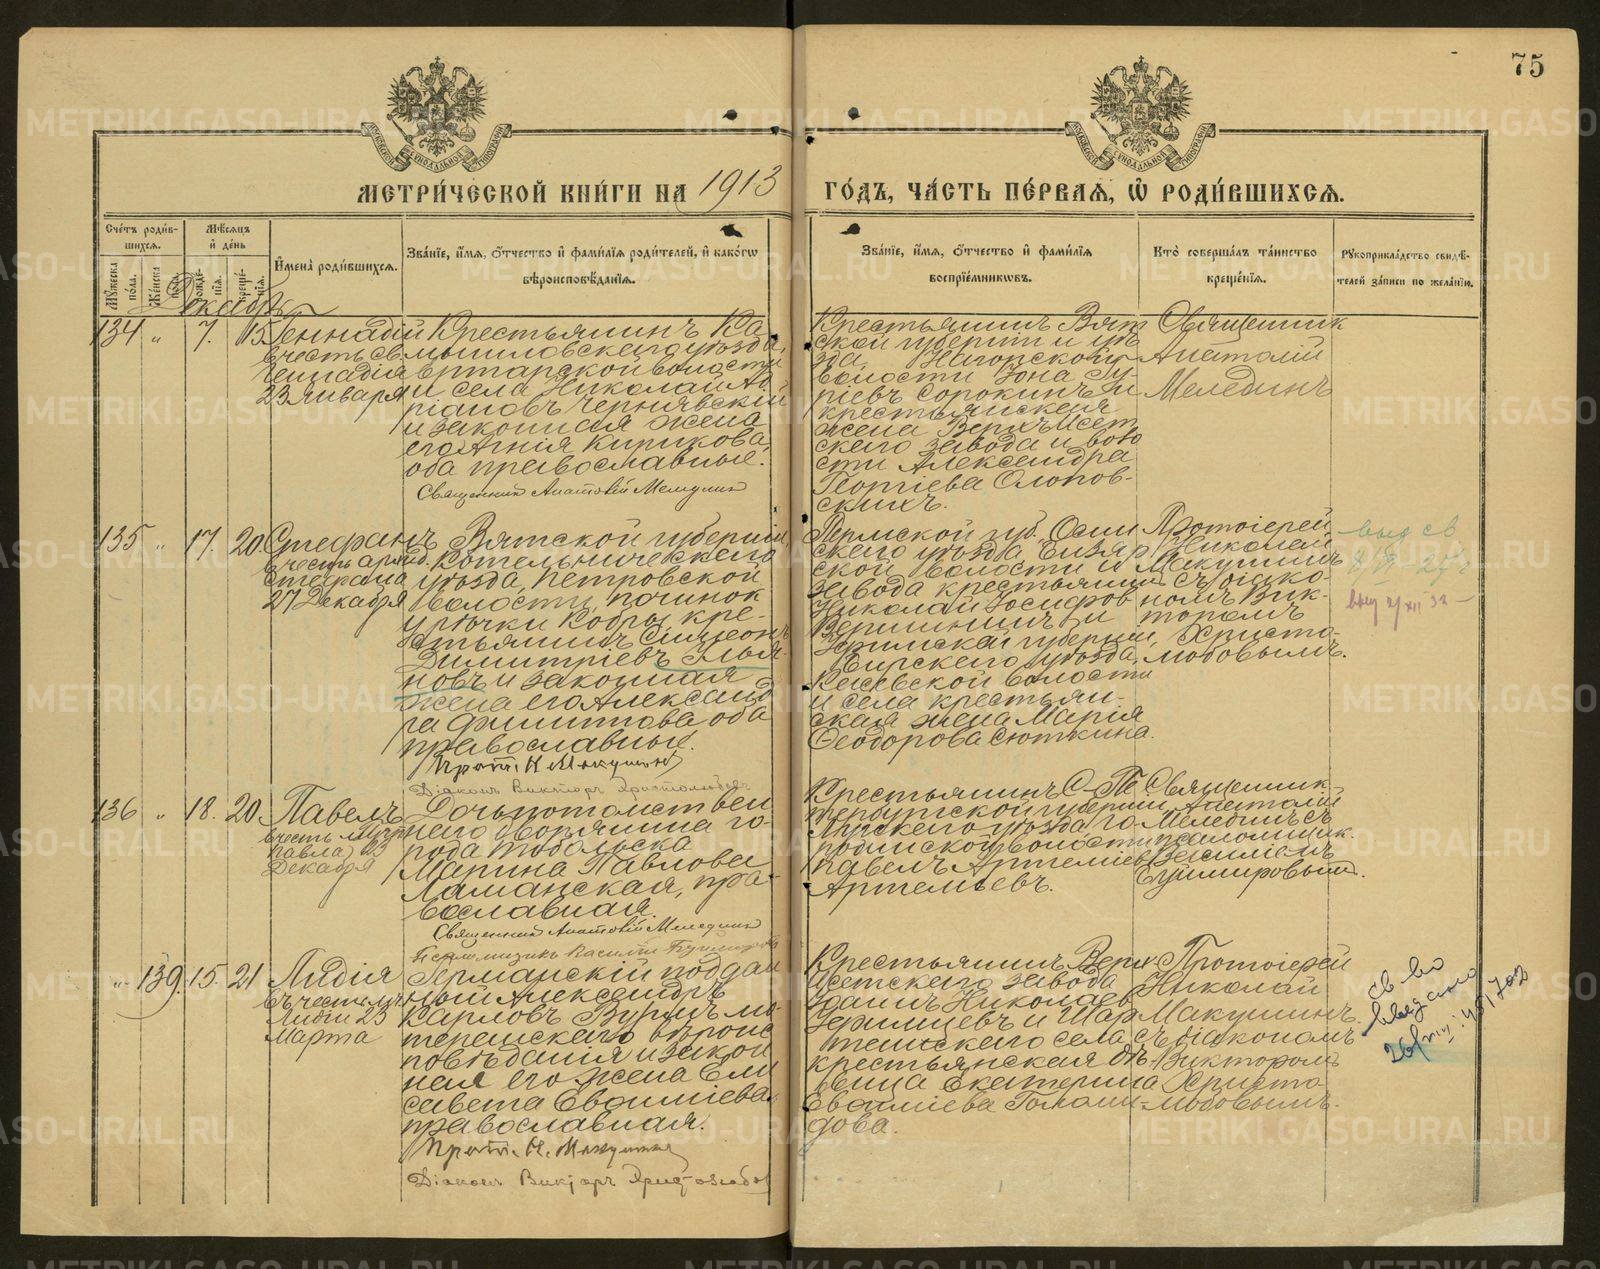 75
МЕТРИ́ЧЕСКОЙ КНИ́ГИ НА 1913 ГО́ДЪ, ЧА́СТЬ ПЕ́РВАЯ, Ѡ РОДИ́ВШИХСЯ.
Сче́тъ роди́вшихся.
Му́жеска по́ла.
Же́нска по́ла.
Мѣ́сяцъ и де́нь
рожде́нія.
креще́нія.
Имена̀ роди́вшихся.
Зва́ніе, и́мя, о́тчество и фами́лія роди́телей, и како́гѡ вѣроисповѣ́данія.
Зва́ніе, и́мя, о́тчество и фами́лія воспріе́мниковъ.
Кто̀ соверша́лъ та́инство креще́нія.
Рукоприкла́дство свидѣ́телей за́писи по жела́нію.
Декабрь
134 „ 7. 15
Геннадій
въ честь св.
Геннадія
23 Января
Крестьянинъ Ка-
мышловскаго уѣзда,
волости
и села Николай Ад-
ріановъ Чернявскій
и законная жена
его Агнія Кирикова,
оба православные.
Священник Анатолій Меледин
Крестьянинъ Вят-
ской губерніи и уѣ-
зда, Нагорской
волости Іона Гу-
рьевъ Сорокинъ и
крестьянская
жена Верхъ-Исет-
скаго завода и воло-
сти Александра
Георгіева Олонов-
скихъ.
Священник
Анатолій
Мелединъ
135 „ 17. 20.
Стефанъ
въ честь архид.
Стефана
27 Декабря
Вятской губерніи,
Котельническаго
уѣзда, Петровской
волости, починок
Кобры, кре-
стьянинъ Симеонъ
Димитріевъ Улья-
новъ и законная
жена его Александ-
ра Филиппова оба
православные.
Прот. Н. Макушинъ
Діаконъ Викторъ Христолюбовъ
Пермской губ. Осин-
скаго уѣзда, Бизяр-
ской волости и
завода крестьянин
Николай Іосифов
Вершининъ и
Уфимской губерніи,
Бирскаго уѣзда,
волости
и села крестьян-
ская жена Марія
Ѳеодорова Сюткина.
Протоіерей
Николай
Макушинъ
съ діако-
номъ Вик-
торомъ
Христо-
любовымъ.
выд св
136 „ 18. 20
Павелъ
въ честь муч.
Павла 23
Декабря
Дочь потомствен-
наго дворянина го-
рода Тобольска
Марина Павлова
Ламанская, пра-
вославная.
Священник Анатолій Меледин
Псаломщикъ Василій
Крестьянинъ С-Пе-
тербургской губерніи
уѣзда, Го-
родинской волости
Павелъ Артеміев
Артемьевъ.
Священник
Анатолій
Мелединъ съ
псаломщик.
Василіемъ
„ 139. 15. 21
Лидія
въ честь муч.
Лидіи 23
Марта
Германскій поддан-
ный Александръ
Карловъ Вурмъ лю-
теранскаго вѣроис-
повѣданія и закон-
ная его жена Ели-
савета Евѳиміева,
православная.
Прот. Н. Макушин
Діаконъ Викторъ Христолюбов
Крестьянинъ Верх-
Исетскаго завода
Іоаннъ Николаев
и Шар-
ташскаго села
крестьянская дѣ-
вица Екатерина
Евѳиміева
дова.
Протоіерей
Николай
Макушинъ
съ діакономъ
Викторомъ
Христо-
любовымъ.
св-во
выдано